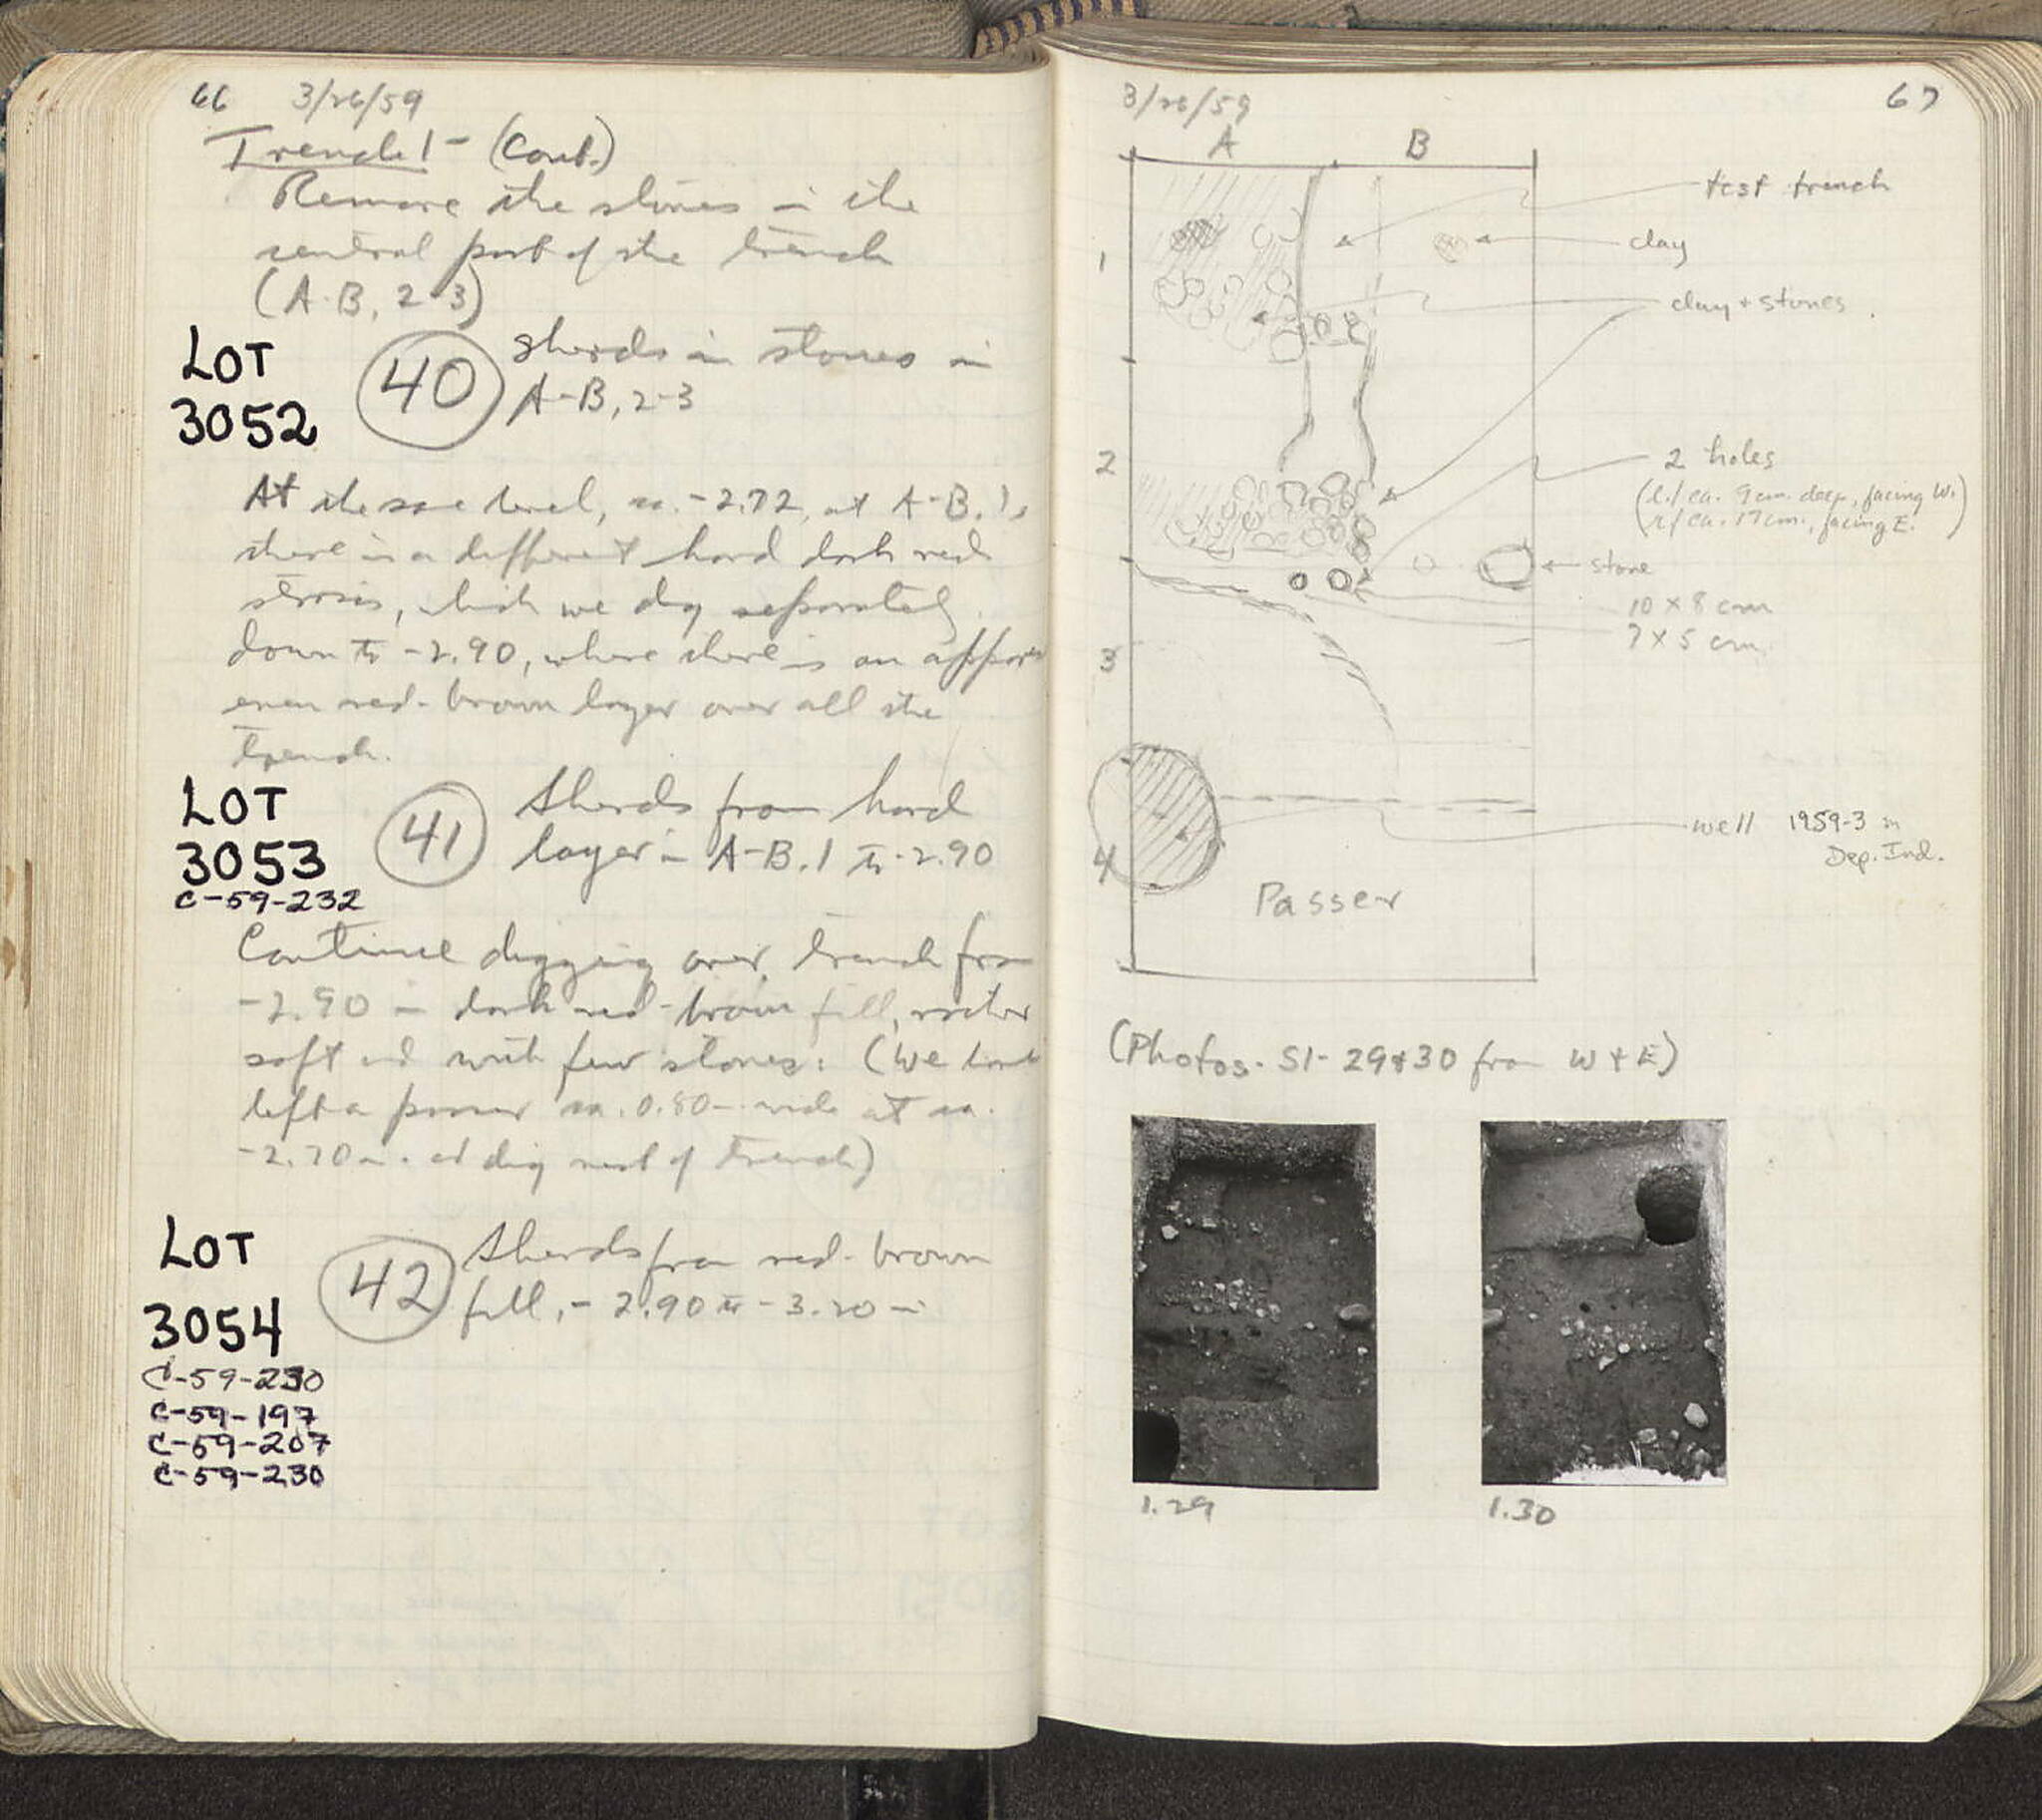 66 3/26/59
Trench 1 - (Cont.)
Remove the stones in the
central part of the trench
(A-B, 2-3)
LOT
3052
40
Sherds in stones in
A-B, 2-3
At the same level, ca. -2.72, at A-B.1,
there is a different hard dark red
strosis, which we dig separately
down to -2.90, where there is an
even red-brown layer over all the
trench.
LOT
3053
C-59-232
41
Sherds from hard
layer in A-B.1 to -2.90
Continue digging over trench from
-2.90 in dark red-brown fill, rather
soft and with few stones. (We have
left a passer ca. 0.80m. wide at ca.
-2.70m. and dig rest of trench)
LOT
3054
C-59-230
C-59-197
C-59-207
C-59-230
42
Sherds from red-brown
fill, -2.90 to -3.20 m
3/26/59 67
A B
1
2
3
4
test trench
clay
clay + stones
2 holes
(l./ca. 9cm. deep, facing W.)
(r/ca. 17cm., facing E.
stone
10 x 8 cm
7 x 5 cm.
well 1959-3 in
Dep. Ind.
Passer
(Photos. S1- 29+30 from W + E)
1.29
1.30